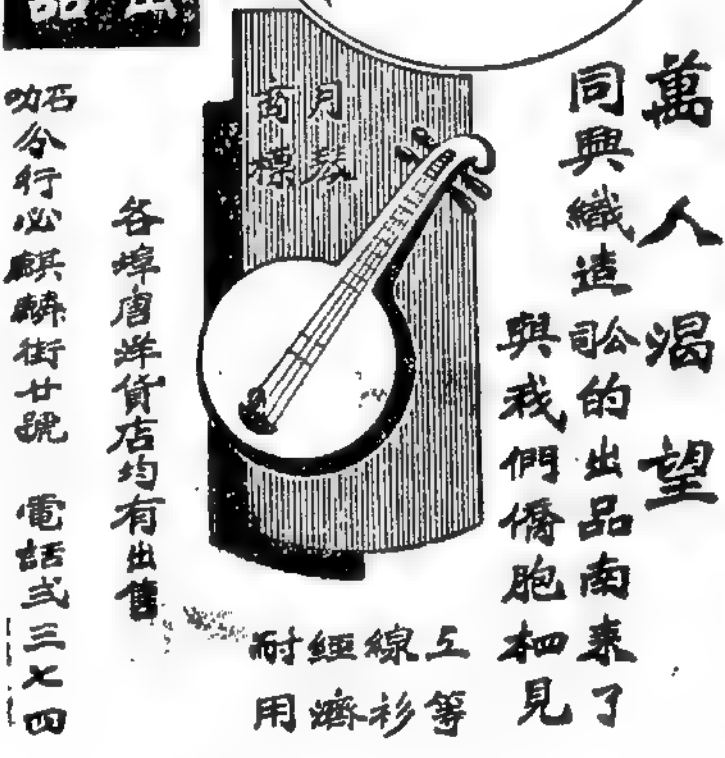 萬人渴望
同興織造公司的出品南來了
與我們僑胞相見
月琴
商標
工等
線衫
經濟
耐用
各埠唐洋貨店均有出售
石叻分行必麒麟街廿號 電話弍三七四